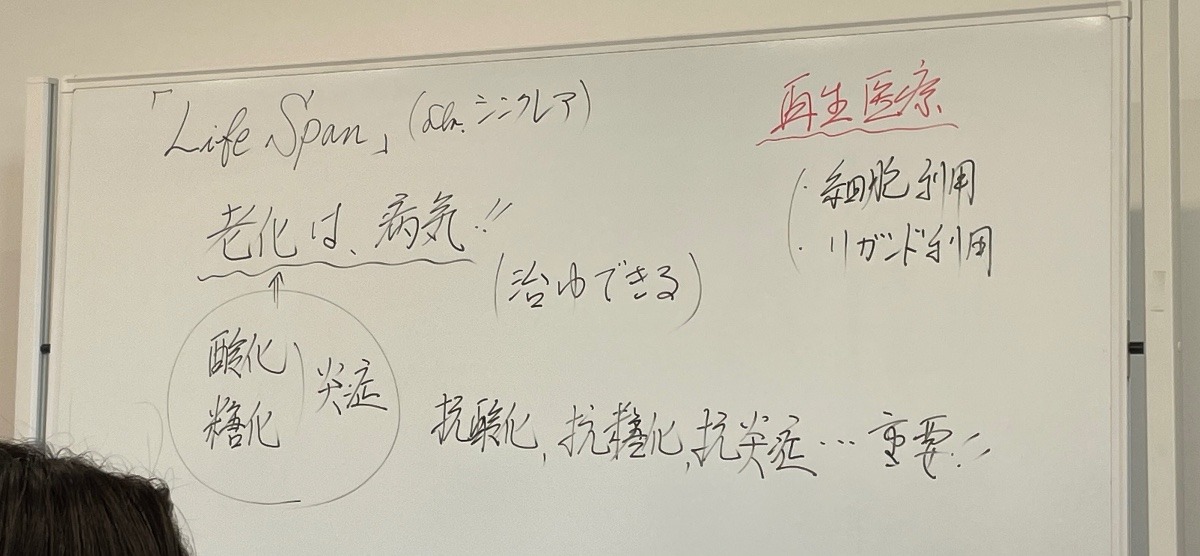 「Life Span」(Dr.シンクレア)
老化は、病気!!
(治ゆできる)
酸化
糖化
炎症
抗酸化, 抗糖化, 抗炎症…重要!!
再生医療
・細胞利用
・リガンド利用